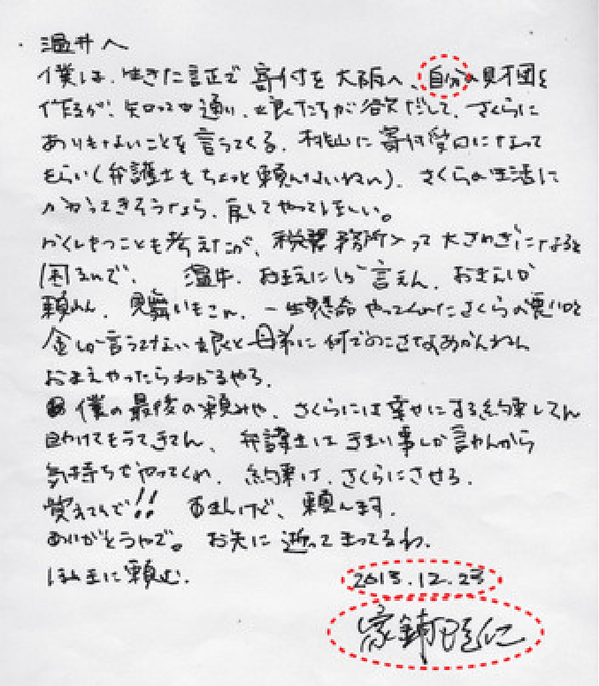 温井へ
僕は、生きた証で寄付を大阪へ、自分の財団を
作るが、知っての通り、娘たちが欲だして、さくらに
ありもないことを言うてくる。桃山に寄付受口になって
もらい(弁護士もちょっと頼んないねん)、さくらの生活に
かわってきそうなら、戻してやってほしい。
かくしもつことも考えたが、税務務所入って大さわぎになると
困るんで、温井、おまえにしか言えん、おまえしか
頼れん、見舞いもこん、一生懸命やってくれたさくらの悪口と
金しか言うてない娘と母弟に何でのこさなあかんねん
おまえやったらわかるやろ。
僕の最後の頼みや、さくらには幸せにする約束してん
助けてもうてきてん、弁護士はきまい事しか言わんから
気持ちでやってくれ、約束は、さくらにさせろ。
覚えてんで!! あまえけど、頼んます。
ありがとうやで。お先に逝ってまってるわ。
ほんまに頼む。
2013.12.23
家鋪隆仁